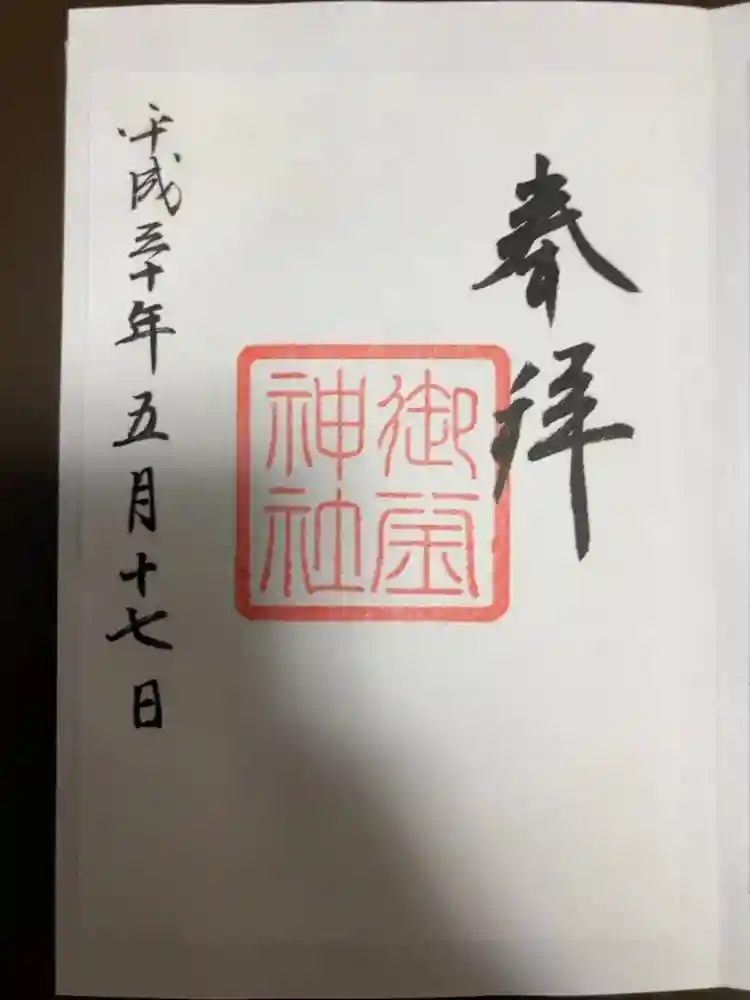 奉拝
御
神社
平成三十年五月十七日